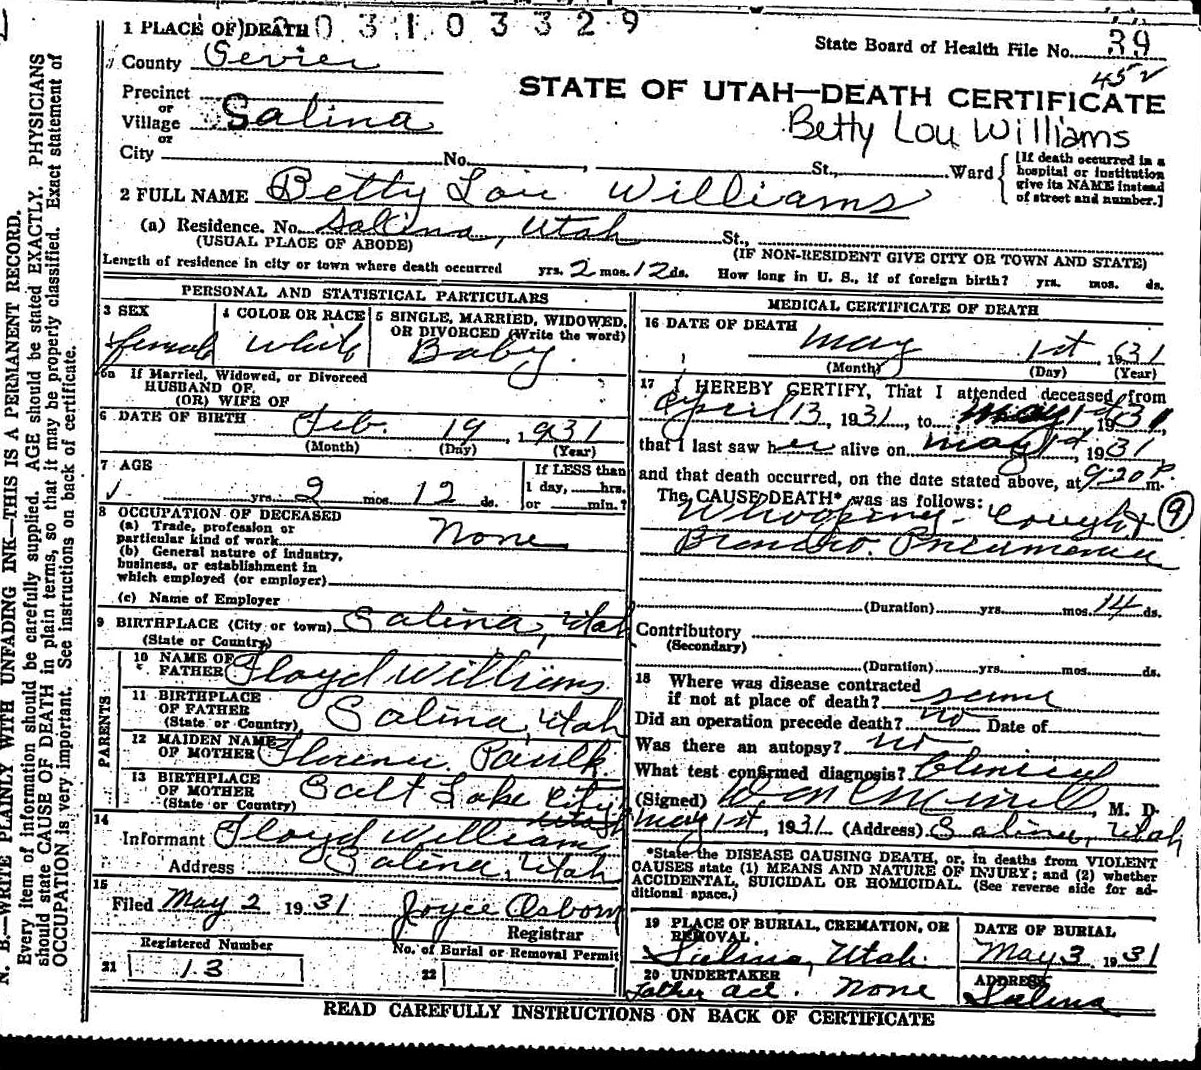 1 PLACE OF DEATH 0 3 1 0 3 3 2 9
State Board of Health File No. 39
County Sevier
45 v
STATE OF UTAH—DEATH CERTIFICATE
Precinct
or
Village Salina
or
Betty Lou Williams
City No. St., Ward
[If death occurred in a hospital or institution give its NAME instead of street and number.]
2 FULL NAME Betty Lou Williams
(a) Residence. No. Salina, Utah St.,
(USUAL PLACE OF ABODE) (IF NON-RESIDENT GIVE CITY OR TOWN AND STATE)
Length of residence in city or town where death occurred yrs. 2 mos. 12 ds. How long in U. S., if of foreign birth? yrs. mos. ds.
PERSONAL AND STATISTICAL PARTICULARS
3 SEX female
4 COLOR OR RACE White
5 SINGLE, MARRIED, WIDOWED, OR DIVORCED (Write the word) Baby
6a If Married, Widowed, or Divorced
HUSBAND OF
(OR) WIFE OF
6 DATE OF BIRTH Feb. 19, 1931
(Month) (Day) (Year)
7 AGE yrs. 2 mos. 12 ds.
If LESS than
1 day, hrs.
or min.?
8 OCCUPATION OF DECEASED
(a) Trade, profession or
particular kind of work None
(b) General nature of industry,
business, or establishment in
which employed (or employer)
(c) Name of Employer
9 BIRTHPLACE (City or town) Salina, Utah
(State or Country)
PARENTS
10 NAME OF FATHER Floyd Williams
11 BIRTHPLACE
OF FATHER
(State or Country) Salina, Utah
12 MAIDEN NAME
OF MOTHER Florence Paulk
13 BIRTHPLACE
OF MOTHER
(State or Country) Salt Lake City
Utah
14
Informant Floyd Williams
Address Salina, Utah
15
Filed May 2 1931 Joyce Osborn
Registrar
Registered Number
21 13
No. of Burial or Removal Permit
22
MEDICAL CERTIFICATE OF DEATH
16 DATE OF DEATH May 1st, 1931
(Month) (Day) (Year)
17 I HEREBY CERTIFY, That I attended deceased from
April 13, 1931, to May 1st 1931
that I last saw her alive on May 1st, 1931
and that death occurred, on the date stated above, at 9:20 P. m.
The CAUSE DEATH* was as follows:
Whooping-cough + 9
Broncho. Pneumonia
(Duration) yrs. mos. 14 ds.
Contributory
(Secondary)
(Duration) yrs. mos. ds.
18 Where was disease contracted
if not at place of death? same
Did an operation precede death? no Date of
Was there an autopsy? no
What test confirmed diagnosis? Clinical
(Signed) M. D.
May 1st, 1931 (Address) Salina, Utah
*State the DISEASE CAUSING DEATH, or, in deaths from VIOLENT
CAUSES state (1) MEANS AND NATURE OF INJURY; and (2) whether
ACCIDENTAL, SUICIDAL OR HOMICIDAL. (See reverse side for ad-
ditional space.)
19 PLACE OF BURIAL, CREMATION, OR
REMOVAL
Salina, Utah.
DATE OF BURIAL
May 3, 1931
20 UNDERTAKER
Father act. None
ADDRESS
Salina
READ CAREFULLY INSTRUCTIONS ON BACK OF CERTIFICATE
N. B.—WRITE PLAINLY WITH UNFADING INK—THIS IS A PERMANENT RECORD.
Every item of information should be carefully supplied. AGE should be stated EXACTLY. PHYSICIANS
should state CAUSE OF DEATH in plain terms, so that it may be properly classified. Exact statement of
OCCUPATION is very important. See instructions on back of certificate.